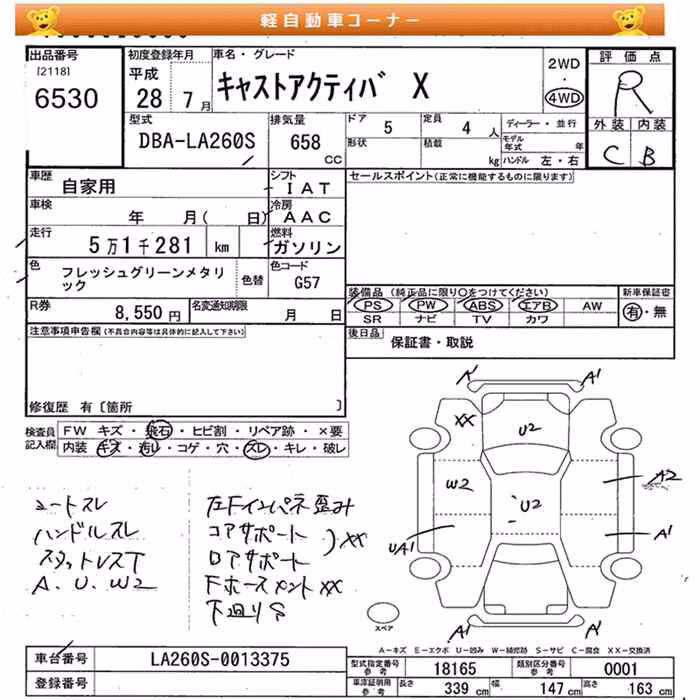 軽自動車コーナー
出品番号
[2118]
6530
初度登録年月
平成
28 7月
車名・グレード
キャストアクティバ X
2WD
・
4WD
評価点
R
外装 内装
C B
型式
DBA-LA260S
排気量
658
CC
ドア 5
定員 4 人
形状
積載 kg
ディーラー・並行
モデル年式 年
ハンドル 左・右
車歴
自家用
シフト
IAT
車検
年 月( 日)
冷房
AAC
走行
5万1千281 km
燃料
ガソリン
色
フレッシュグリーンメタリック
色替
色コード
G57
R券
8,550円
名変通知期限
月 日
セールスポイント(正常に機能するものに限ります)
装備品(純正品に限り○をつけてください)
PS PW ABS エアB AW
SR ナビ TV カワ
新車保証書
有・無
後日品
保証書・取説
注意事項申告欄(不具合内容等は具体的に記入して下さい)
修復歴 有〔箇所 〕
検査員記入欄
FW キズ・飛石・ヒビ割・リペア跡・×要
内装 キズ・汚れ・コゲ・穴・スレ・キレ・破レ
シートスレ
ハンドルスレ
スタットレスT
A、U、W2
左Fインパネ歪み
コアサポート
ロアサポート
)XX
Fホースメント XX
下廻りS
A1
A1
XX
U2
W2
U2
A2
UA1
A1
A1
A1
スペア
A-キズ E-エクボ U-凹み W-補修跡 S-サビ C-腐食 XX-交換済
車台番号
LA260S-0013375
登録番号
型式指定番号
参考
18165
類別区分番号
参考
0001
車庫証明用
参考
長さ 339 cm
幅 147 cm
高さ 163 cm